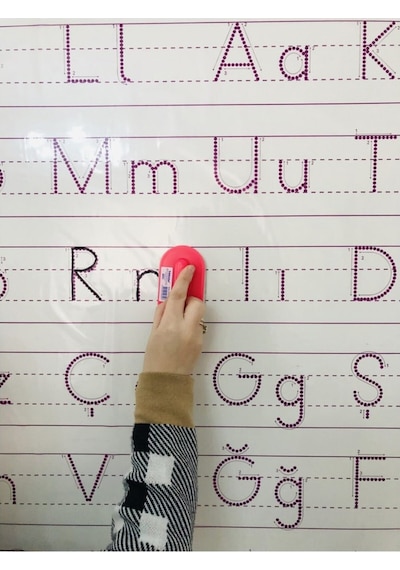 Ll Aa K
Mm Uu T
Rr Iı D
z Ç Gg Ş
V Ğğ F